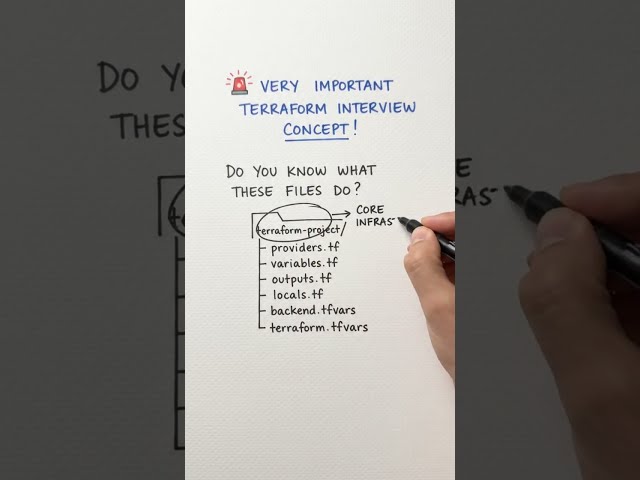 🚨 VERY IMPORTANT
TERRAFORM INTERVIEW
CONCEPT!
DO YOU KNOW WHAT
THESE FILES DO?
terraform-project/
CORE
INFRAS
providers.tf
variables.tf
outputs.tf
locals.tf
backend.tfvars
terraform.tfvars